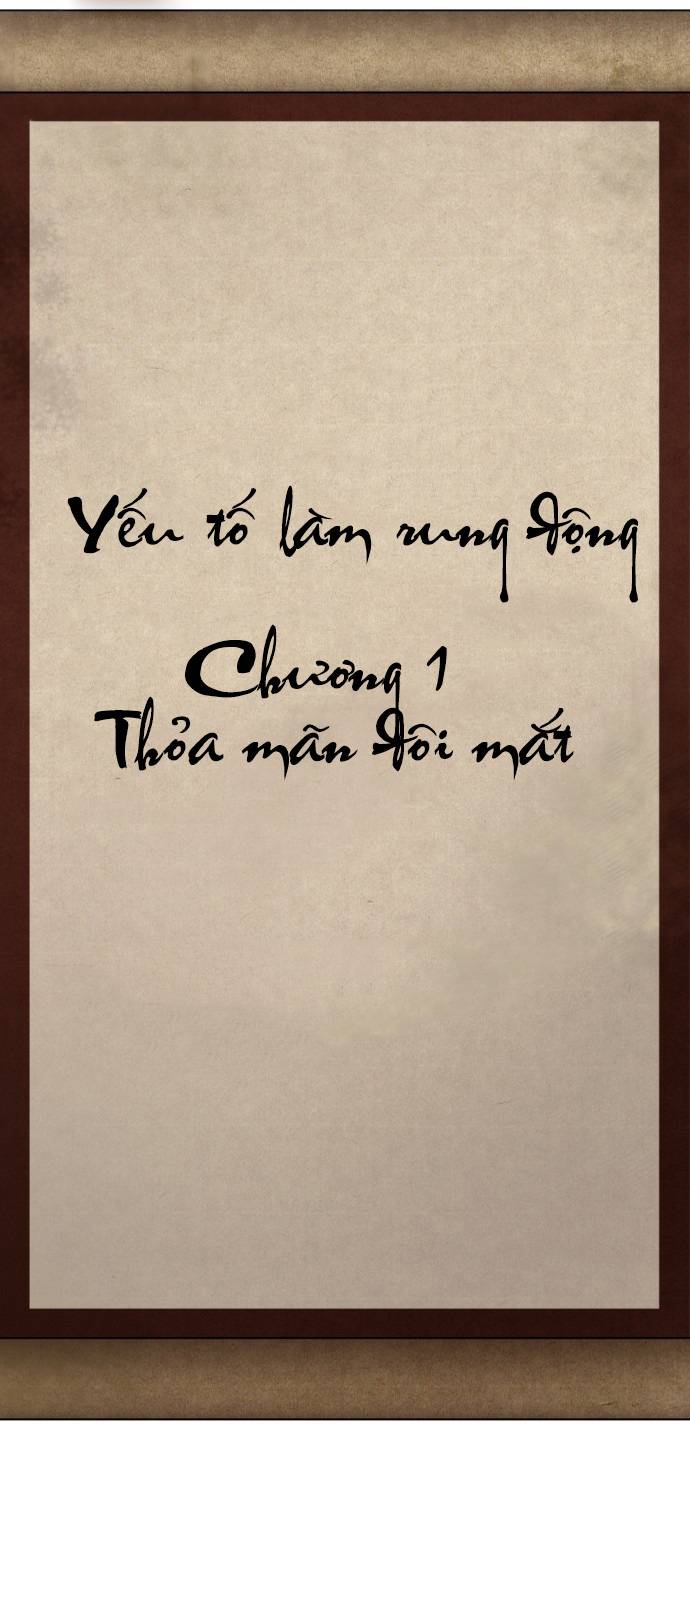 Yếu tố làm rung động
Chương 1
Thỏa mãn đôi mắt